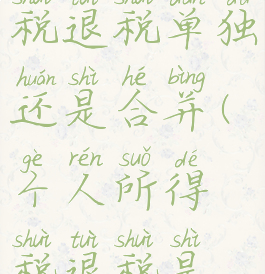 shuì tuì shuì dān dú
税退税单独
huán shì hé bìng
还是合并(
gè rén suǒ dé
个人所得
shuì tuì shuì shì
税退税是